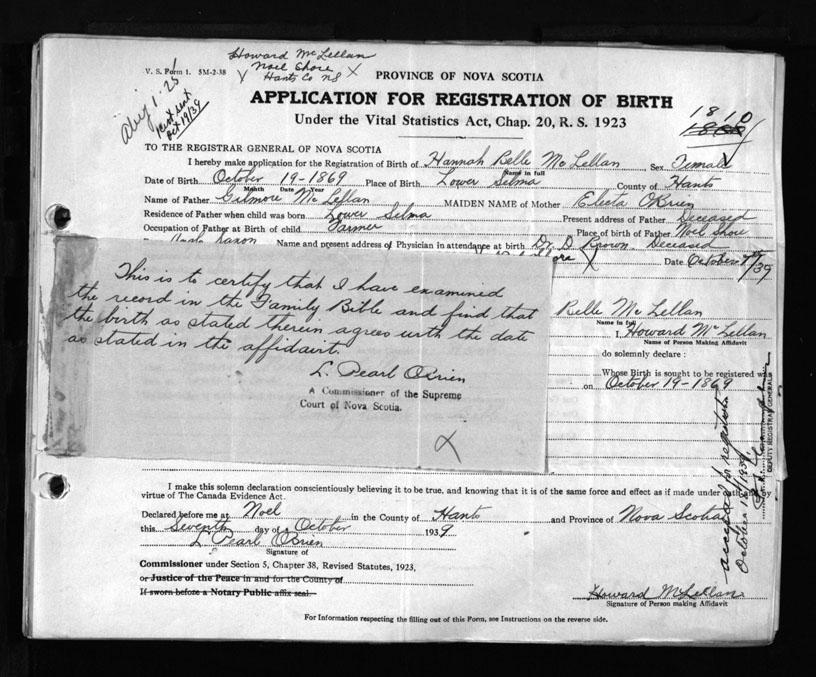 Howard McLellan
Noel Shore
Hants Co NS
V. S. Form 1. 5M-2-38
PROVINCE OF NOVA SCOTIA
APPLICATION FOR REGISTRATION OF BIRTH
Under the Vital Statistics Act, Chap. 20, R. S. 1923
1810
Oct 19/39
TO THE REGISTRAR GENERAL OF NOVA SCOTIA
I hereby make application for the Registration of Birth of Hannah Belle McLellan Sex Female
Name in full
Date of Birth October 19-1869 Place of Birth Lower Selma County of Hants
Month Date Year
Name of Father Gilmore McLellan MAIDEN NAME of Mother Electa OBrien
Residence of Father when child was born Lower Selma Present address of Father Deceased
Occupation of Father at Birth of child Farmer Place of birth of Father Noel Shore
Saxon Name and present address of Physician in attendance at birth Dr. D. Brown. Deceased
Date October 7th/39
This is to certify that I have examined
the record in the Family Bible and find that
the birth as stated therein agrees with the date
as stated in the affidavit.
L. Pearl OBrien
A Commissioner of the Supreme
Court of Nova Scotia.
X
Belle McLellan
Name in full
I, Howard McLellan
Name of Person Making Affidavit
do solemnly declare :
Whose Birth is sought to be registered was
on October 19-1869
accepted for registration
October 18/1939
DEPUTY REGISTRAR GENERAL
I make this solemn declaration conscientiously believing it to be true, and knowing that it is of the same force and effect as if made under oath
virtue of The Canada Evidence Act.
Declared before me at Noel in the County of Hants and Province of Nova Scotia
this Seventh day of October 1939
L Pearl OBrien
Signature of
Commissioner under Section 5, Chapter 38, Revised Statutes, 1923,
or Justice of the Peace in and for the County of
If sworn before a Notary Public affix seal.
Howard McLellan
Signature of Person making Affidavit
For Information respecting the filling out of this Form, see Instructions on the reverse side.